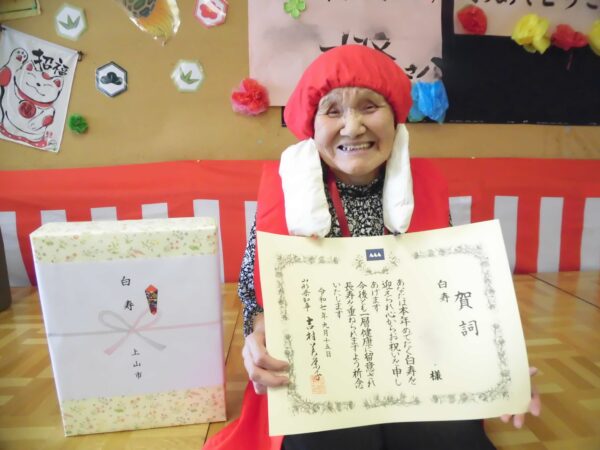 招福
白寿
上山市
賀詞
白寿
様
あなたは本年めでたく白寿を
迎えられ心からお祝いを申し
あげます
今後とも一層健康に留意され
長寿を重ねられますよう祈念
いたします
令和七年九月十五日
山形県知事 吉村美栄子